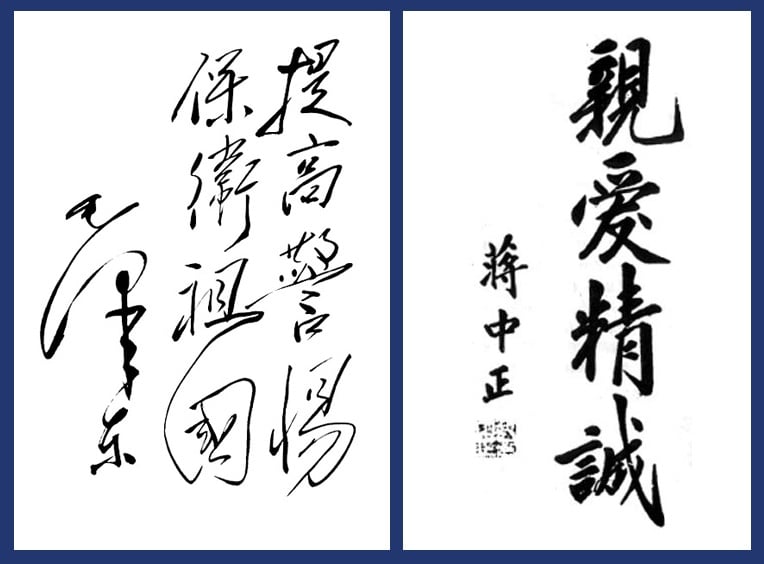 提高警惕
保衛祖國
毛泽东
親愛精誠
蔣中正